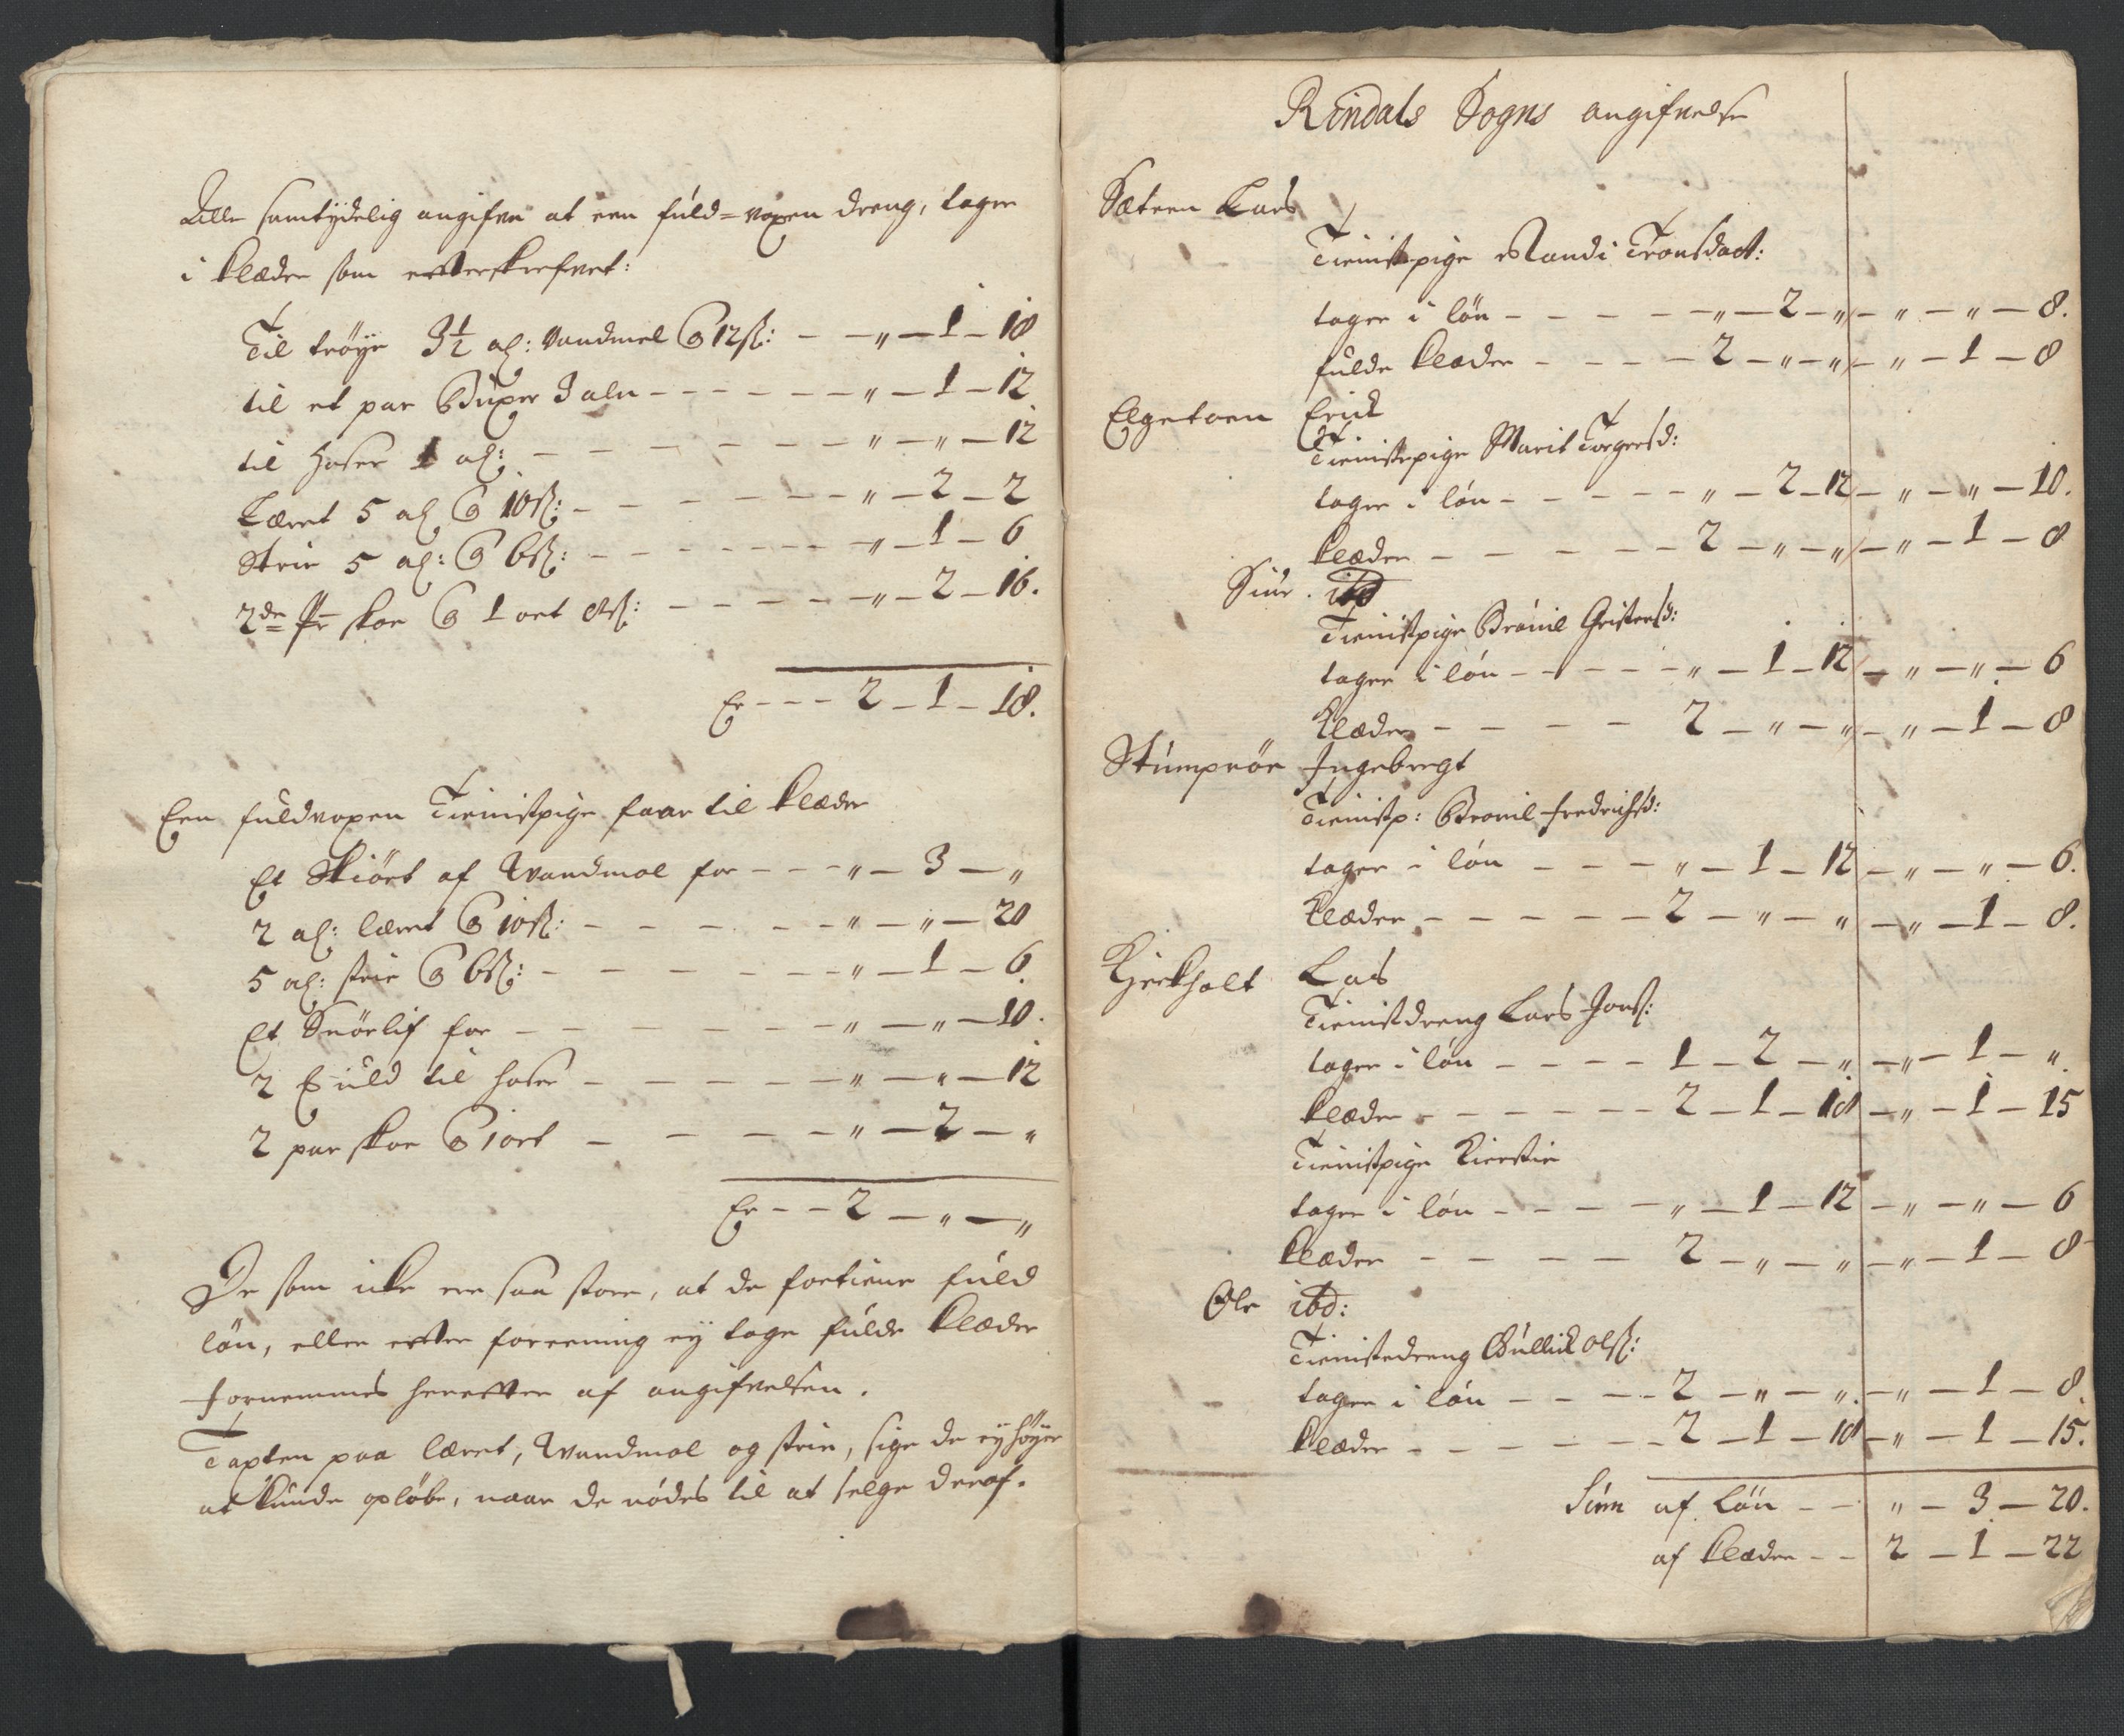 Alle samtÿdelig angifve at een fuld=voxen dreng, tager
i klæder som efterskrefvet:
Til trøÿe 3½ al: Vandmel @ 12 s: - - „ - 1 - 18
til et par Buxer 3 aln - - - - - - „ - 1 - 12
til Hoser 1 al: - - - - - - - „ - „ - 12
Lærret 5 al @ 10 s: - - - - - - „ - 2 - 2
Strie 5 al: @ 6 s: - - - - - - „ - 1 - 6
2de Pr skoe @ 1 ort 8 s: - - - - - „ - 2 - 16.
Er - - - 2 - 1 - 18.
Een fuldvoxen Tienistpige faar til klæder
Et Skiört af Wandmel for - - - „ - 3 - „
2 al: lærret @ 10 s: - - - - - „ - „ - 20
5 al: strie @ 6 s: - - - - - „ - 1 - 6
Et Snörlif for - - - - - - „ - „ - 10.
2 ℔ uld til hoser - - - - - „ - „ - 12
2 par skoe @ 1 ort - - - - - „ - 2 - „
Er - - 2 - „ - „
De som icke ere saa store, at de fortiene fuld
løn, eller efter foreening eÿ tage fulde klæder
fornemmes herefter af angifvelsen.
Taxten paa lærret, Wandmel og strie, sige de eÿ høÿer
at kunde opløbe, naar de nødes til at selge deraf.
Rindals Sogns angifvelse
Sæteren Lars
Tienistpige Randi Tronsdaat:
tager i løn - - - - - „ - 2 - „ - „ - „ - 8.
fulde klæder - - - - 2 - „ - „ - „ - 1 - 8
Elgetoen Erick
Tienistepige Marit Torgersd:
tager i løn - - - - - „ - 2 - 12 - „ - „ - 10.
klæder - - - - - 2 - „ - „ - „ - 1 - 8
Siur ibd
Tienistpige Brönil Gristensd:
tager i løn - - - - - „ - 1 - 12 - „ - „ - 6
klæder - - - - 2 - „ - „ - „ - 1 - 8
Stumprön Ingebregt
Tienistp: Bronil fredrichsd:
tager i løn - - - „ - 1 - 12 - „ - „ - 6.
klæder - - - - - 2 - „ - „ - „ - 1 - 8.
Kjerkholt Lars
Tienistdreng Lars Jons:
tager i løn - - - - 1 - 2 - „ - „ - 1 - „
klæder - - - - - - 2 - 1 - 18 - „ - 1 - 15
Tienistpige Kierstie
tager i løn - - - - „ - 1 - 12 - „ - „ - 6
klæder - - - - 2 - „ - „ - „ - 1 - 8
Ole ibd:
Tienistedreng Gullick ols:
tager i løn - - - - 2 - „ - „ - „ - 1 - 8.
klæder - - - - - - 2 - 1 - 18 - „ - 1 - 15.
Sum af Løn - - „ - 3 - 20.
af klæder - - 2 - 1 - 22